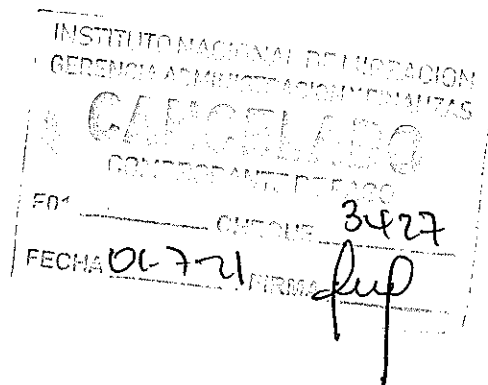 INSTITUTO NACIONAL DE
GERENCIA ADMINISTRACION Y FINANZAS
CANCELADO
COMPROBANTE DE PAGO
F01 CHEQUE 3427
FECHA 01-7-21 FIRMA